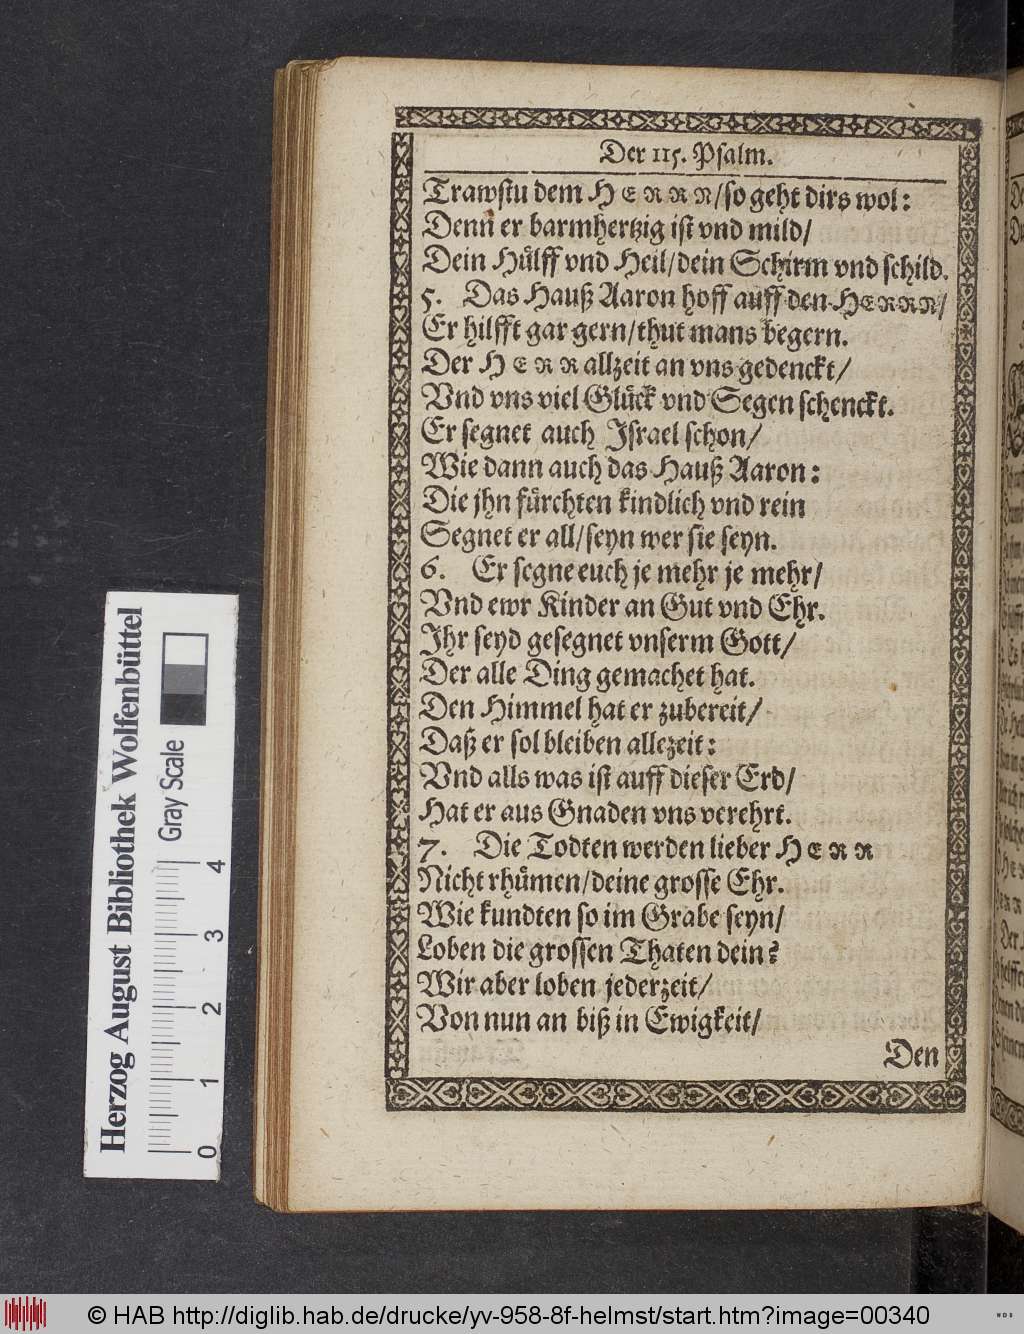 Der 115. Psalm.
Trawstu dem HERRN/so geht dirs wol:
Denn er barmhertzig ist vnd mild/
Dein Hülff vnd Heil/dein Schirm vnd schild.
5. Das Hauß Aaron hoff auff den HERRN/
Er hilfft gar gern/thut mans begern.
Der HERR allzeit an vns gedenckt/
Vnd vns viel Glück vnd Segen schenckt.
Er segnet auch Israel schon/
Wie dann auch das Hauß Aaron:
Die jhn fürchten kindlich vnd rein
Segnet er all/seyn wer sie seyn.
6. Er segne euch je mehr je mehr/
Vnd ewr Kinder an Gut vnd Ehr.
Ihr seyd gesegnet vnserm Gott/
Der alle Ding gemachet hat.
Den Himmel hat er zubereit/
Daß er sol bleiben allezeit:
Vnd alls was ist auff dieser Erd/
Hat er aus Gnaden vns verehrt.
7. Die Todten werden lieber HERR
Nicht rhümen/deine grosse Ehr.
Wie kundten so im Grabe seyn/
Loben die grossen Thaten dein?
Wir aber loben jederzeit/
Von nun an biß in Ewigkeit/
Den
Herzog August Bibliothek Wolfenbüttel
Gray Scale
0 1 2 3 4
© HAB http://diglib.hab.de/drucke/yv-958-8f-helmst/start.htm?image=00340